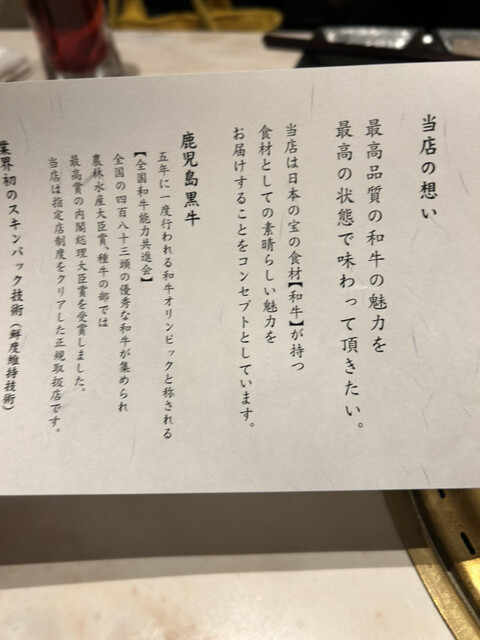 当店の想い
最高品質の和牛の魅力を
最高の状態で味わって頂きたい。
当店は日本の宝の食材【和牛】が持つ
食材としての素晴らしい魅力を
お届けすることをコンセプトとしています。
鹿児島黒牛
五年に一度行われる和牛オリンピックと称される
【全国和牛能力共進会】
全国の四百八十三頭の優秀な和牛が集められ
農林水産大臣賞、種牛の部では
最高賞の内閣総理大臣賞を受賞しました。
当店は指定店制度をクリアした正規取扱店です。
業界初のスキンパック技術（鮮度維持技術）